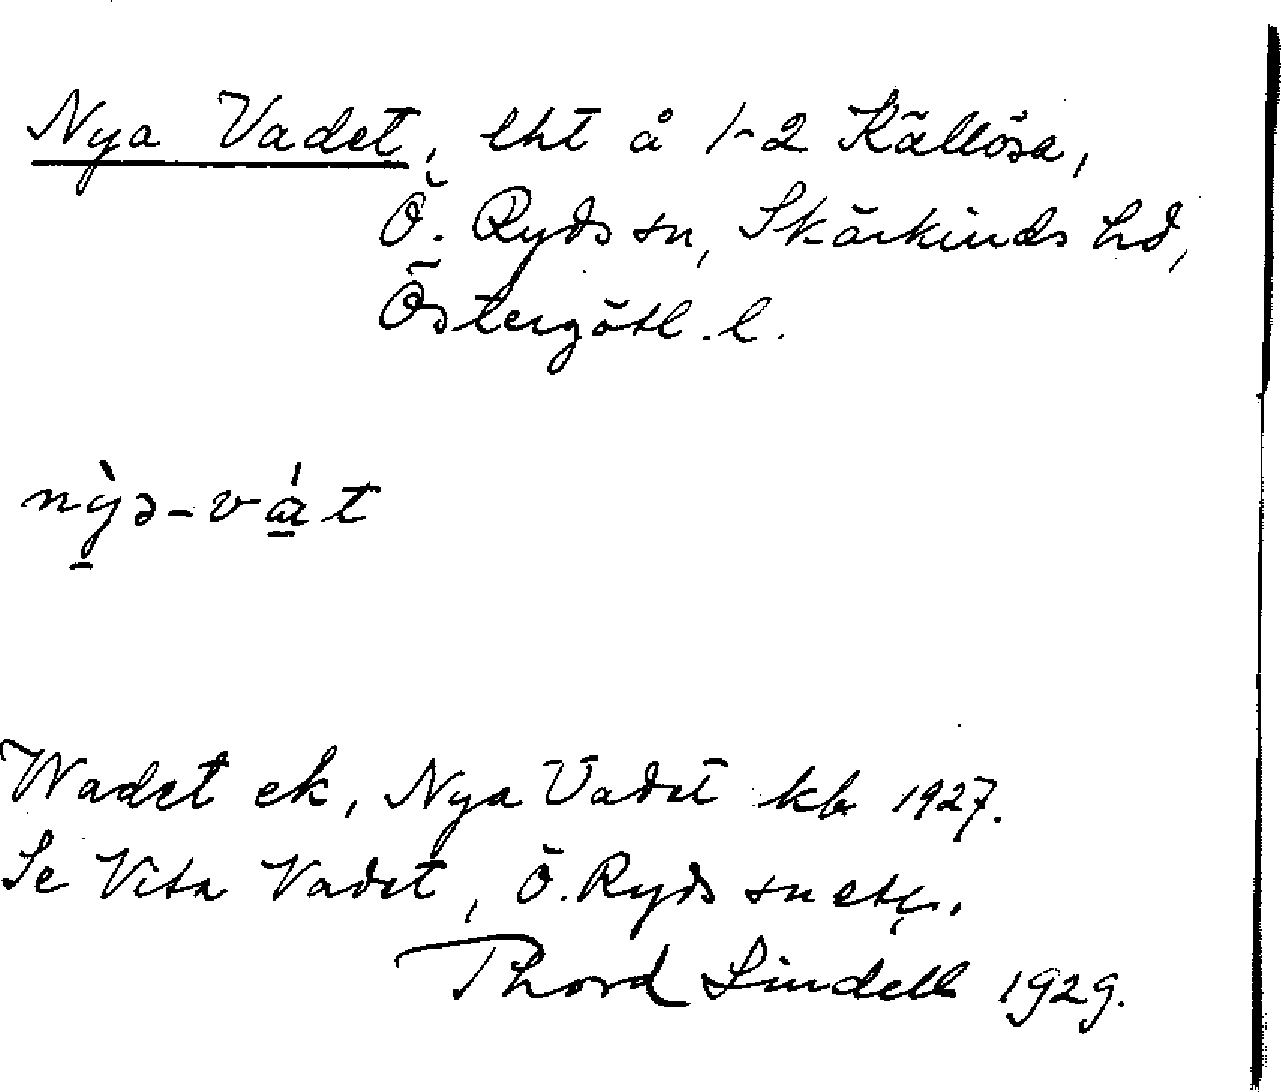 Nya Vadet, lht å 1-2 Källösa,
Ö. Ryds sn, Skärkinds hd,
Östergötl. l.
nỳ̠ə-vá̠t
Wadet ek, Nya Vadet kb 1927.
Se Vita Vadet, Ö. Ryds sn etc.
Thord Lindell 1929.